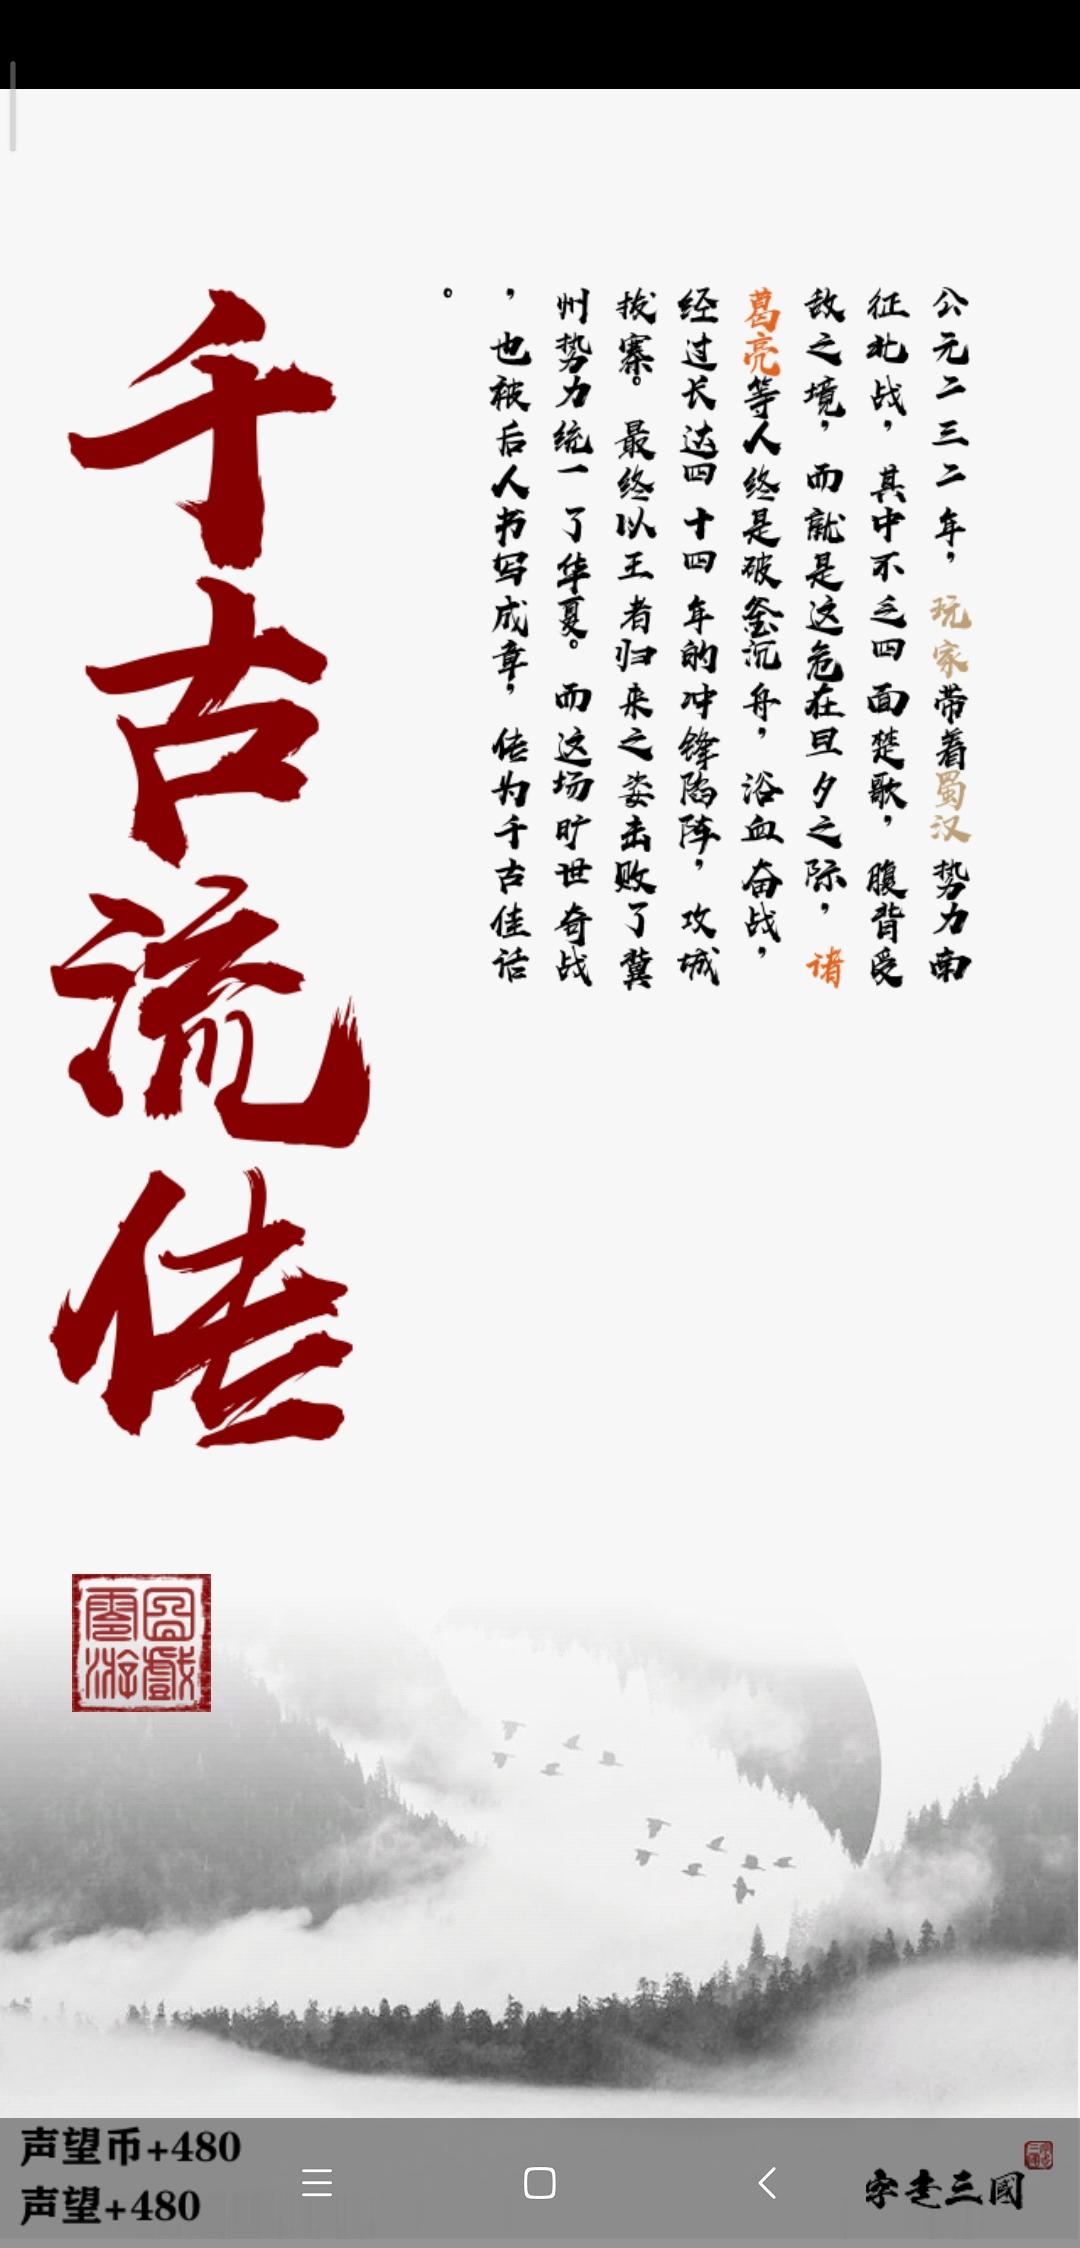 公元二三二年，玩家带着蜀汉势力南
征北战，其中不乏四面楚歌，腹背受
敌之境，而就是这危在旦夕之际，诸
葛亮等人终是破釜沉舟，浴血奋战，
经过长达四十四年的冲锋陷阵，攻城
拔寨。最终以王者归来之姿击败了冀
州势力统一了华夏。而这场旷世奇战
，也被后人书写成章，传为千古佳话
。
千古流传
声望币+480
声望+480